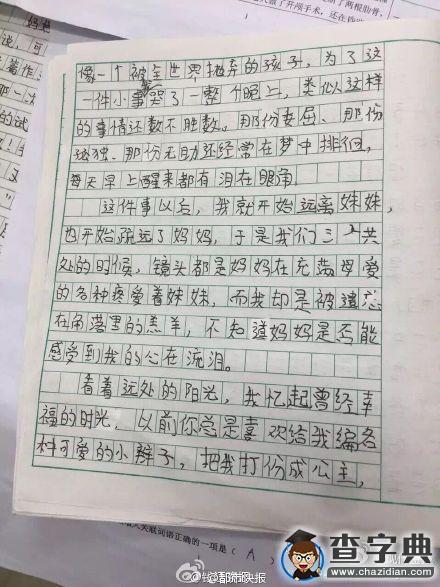 像一个被全世界抛弃的孩子，为了这
一件小事哭了一整个晚上，类似这样
的事情还数不胜数。那份委屈、那份
孤独、那份无助还经常在梦中排徊，
每天早上醒来都有泪在眼角。
这件事以后，我就开始远离妹妹，
也开始疏远了妈妈，于是我们三人共
处的时候，镜头都是妈妈在充满母爱
的各种疼爱着妹妹，而我却是被遗忘
在角落里的羔羊，不知道妈妈是否能
感受到我的心在流泪。
看着远处的阳光，我忆起曾经幸
福的时光，以前你总是喜欢给我编各
种可爱的小辫子，把我打份成公主，
关联词语正确的一项是（A）
@都市快报
查字典
www.chazidian.com